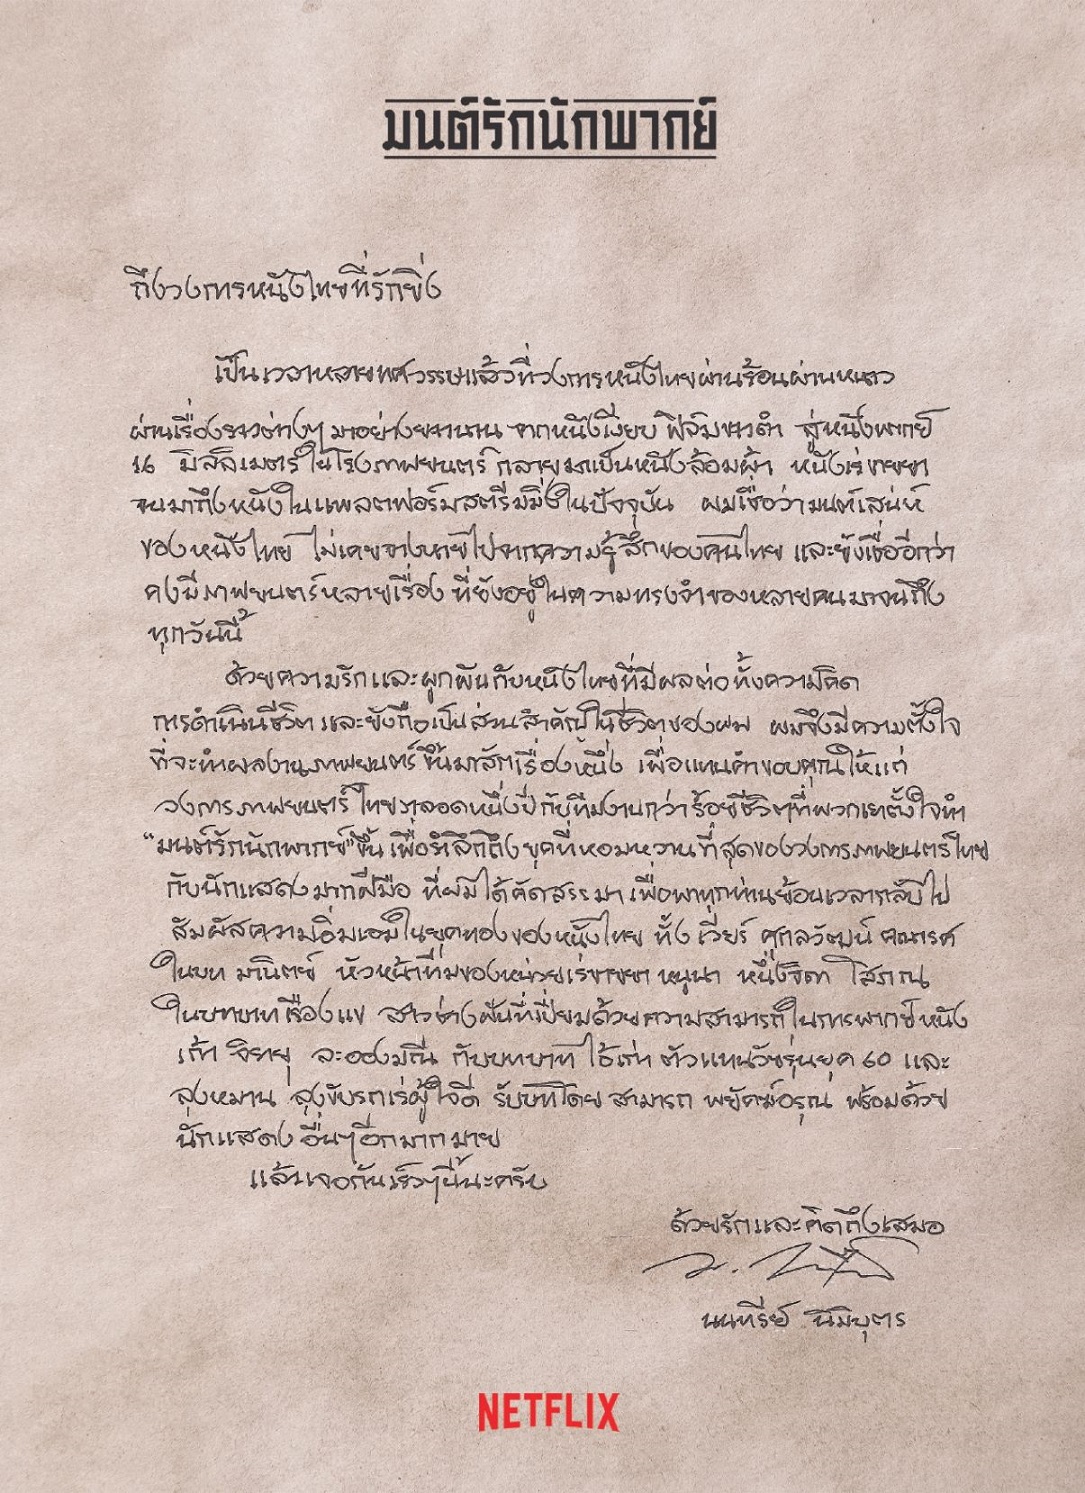 มนต์รักนักพากย์
ถึงวงการหนังไทยที่รักยิ่ง
เป็นเวลาหลายทศวรรษแล้วที่วงการหนังไทยผ่านร้อนผ่านหนาว
ผ่านเรื่องราวต่างๆ มาอย่างยาวนาน จากหนังเงียบ ฟิล์มขาวดำ สู่หนังพากย์
16 มิลลิเมตร ในโรงภาพยนตร์ กลายมาเป็นหนังล้อมผ้า หนังเร่ขายยา
จนมาถึงหนังในแพลตฟอร์มสตรีมมิ่งในปัจจุบัน ผมเชื่อว่ามนต์เสน่ห์
ของหนังไทย ไม่เคยจางหายไปจากความรู้สึกของคนไทย และยังเชื่ออีกว่า
คงมีภาพยนตร์หลายเรื่อง ที่ยังอยู่ในความทรงจำของหลายคนมาจนถึง
ทุกวันนี้
ด้วยความรักและผูกพันกับหนังไทยที่มีผลต่อทั้งความคิด
การดำเนินชีวิต และยังถือเป็นส่วนสำคัญในชีวิตของผม ผมจึงมีความตั้งใจ
ที่จะทำผลงานภาพยนตร์ขึ้นมาสักเรื่องหนึ่ง เพื่อแทนคำขอบคุณให้แก่
วงการภาพยนตร์ไทย ตลอดหนึ่งปีกับทีมงานกว่าร้อยชีวิตที่พวกเราตั้งใจทำ
"มนต์รักนักพากย์" ขึ้น เพื่อรำลึกถึงยุคที่หอมหวานที่สุดของวงการภาพยนตร์ไทย
กับนักแสดงมากฝีมือ ที่ผมได้คัดสรรมา เพื่อพาทุกท่านย้อนเวลากลับไป
สัมผัสความอิ่มเอมในยุคทองของหนังไทย ทั้ง เวียร์ ศุกลวัฒน์ คณารศ
ในบท มานิตย์ หัวหน้าทีมของหน่วยเร่ขายยา หนูนา หนึ่งธิดา โสภณ
ในบทบาทเรืองแข สาวช่างฝันที่เปี่ยมด้วยความสามารถในการพากย์หนัง
เก้า จิรายุ ละอองมณี กับบทบาท ไอ้เก่า ตัวแทนวัยรุ่นยุค 60 และ
ลุงหมาน ลุงขับรถเร่ผู้ใจดี รับบทโดย สามารถ พยัคฆ์อรุณ พร้อมด้วย
นักแสดงอื่นๆอีกมากมาย
แล้วเจอกันเร็วๆนี้นะครับ
ด้วยรักและคิดถึงเสมอ
นนทรีย์ นิมิบุตร
NETFLIX